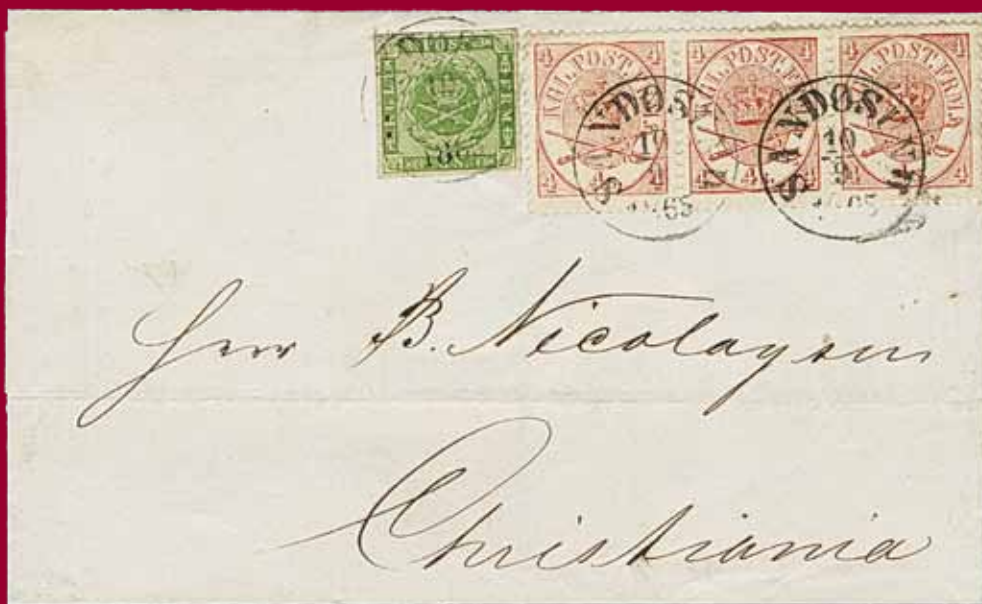 4 KGL. POST. FRM. 4
4 4
4 KGL. POST. FRM. 4
4 4
4 KGL. POST. FRM. 4
4 4
SANDØSUND
10
1865
SANDØSUND
10
9
1865
186
Herr B. Nicolaysen
Christiania